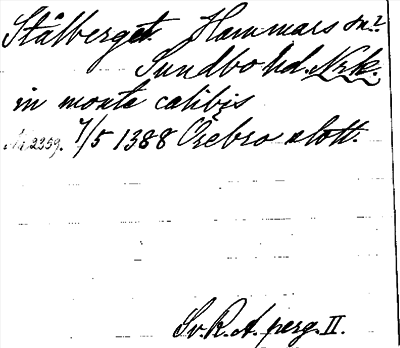 Stålberget. Hammars sn?
Sundbo hd. Nrk.
in monte calibis
Nr 2359. 7/5 1388 Örebro slott.
Sv. R. A. perg. II.